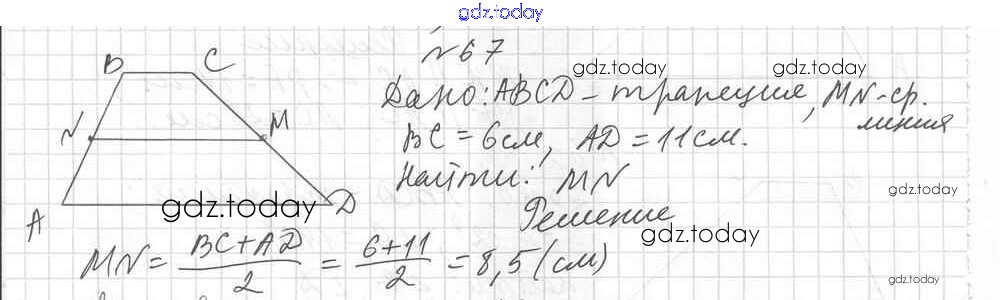 gdz.today
№67
B C
gdz.today
Дано: ABCD - трапеция, MN - ср.
линия
N M
BC = 6см, AD = 11см.
Найти: MN
gdz.today
A D
gdz.today
Решение
gdz.today
MN = \frac{BC+AD}{2} = \frac{6+11}{2} = 8,5 (см)
gdz.today